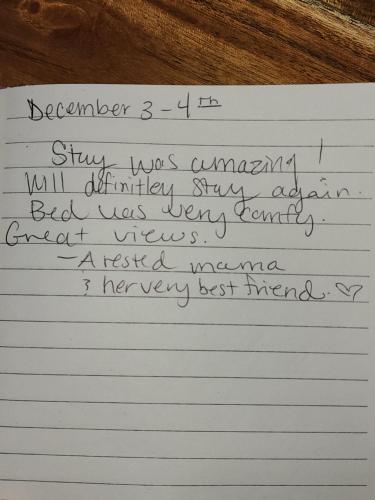 December 3-4th
Stay was amazing!
Will definitley stay again.
Bed was very comfy.
Great views.
- A rested mama
& her very best friend. ♡